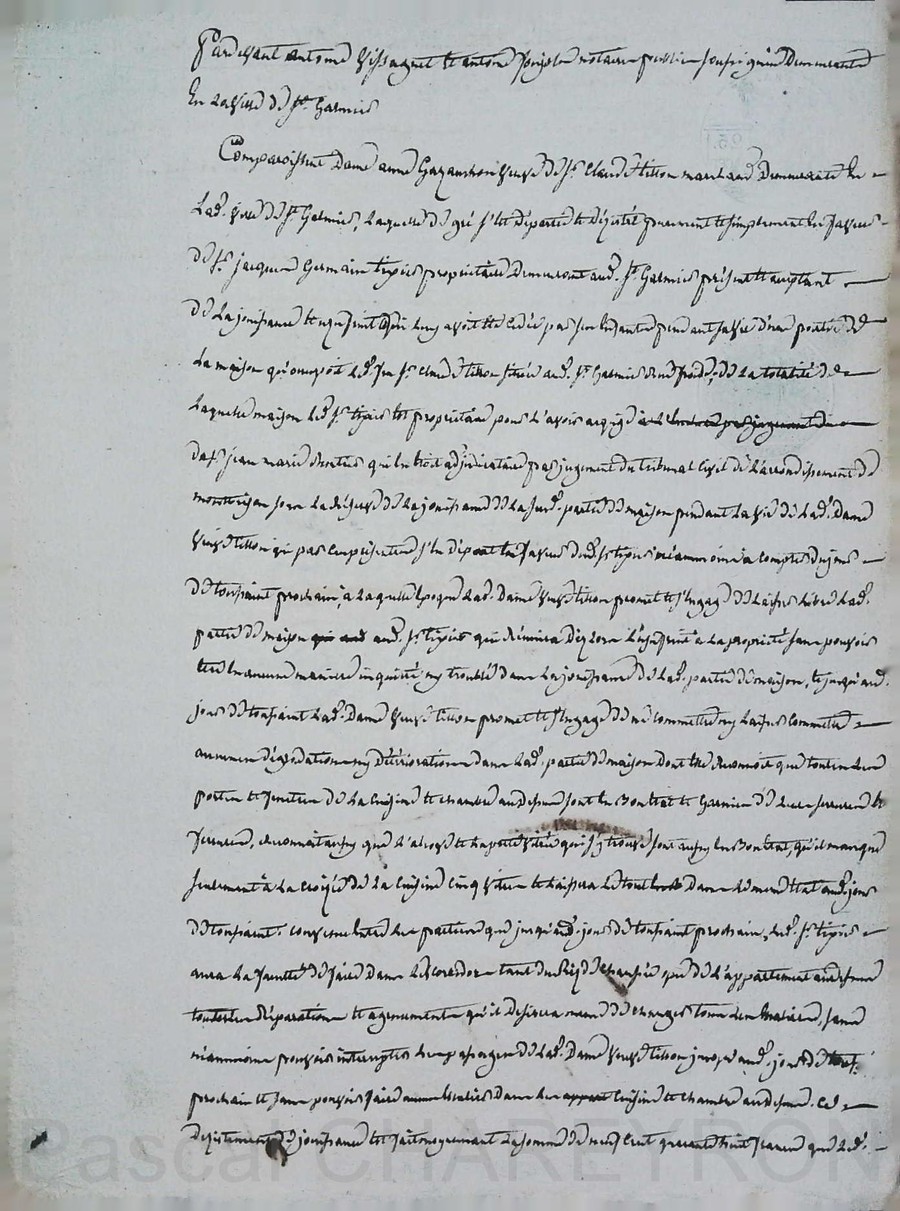 Pardevant antoine Vissaguet et antoine notaire public soussignés Demeurants
En la ville de St. Galmier
Comparoissent Dame anne veuve de Sr. Claude tisson marchand Demeurante en
Lad. ville de St. Galmier, Laquelle de gré s'est départie et désistée purement et simplement en faveur
de Sr. jacques Germain tixier propriétaire Demeurant aud. St. Galmier présent et acceptant
de La jouissance et usufruit qui luy avoit été cédée par pendant sa vie d'une portion de
La maison qu'occupoit led. feu Sr. Claude tisson située aud. St. Galmier de La totalité de
Laquelle maison led. Sr. tixier est propriétaire pour l'avoir acquise
de Sr. jean marie qui en étoit adjudicataire par jugement du tribunal civil de l'arrondissement de
montbrison sous La réserve de La jouissance de La susd. partie de maison pendant La vie de Lad. Dame
veuve tisson qui par ces présentes s'en départ en faveur dud. Sr. tixier néanmoins à compter du jour
de toussaint prochain, à Laquelle époque Lad. Dame veuve tisson promet et s'engage de Laisser libre Lad.
partie de maison aud. Sr. tixier qui réunira Dez Lors L'usufruit à La propriété sans pouvoir
être en aucune manière inquiété ny troublé dans La jouissance de Lad. partie de maison, et jusqu'aud.
jour de toussaint Lad. Dame veuve tisson promet et s'engage de ne commettre ny Laisser commettre
aucunes dégradations ny Détériorations dans Lad. partie de maison Dont elle Reconnoit que toutes Les
portes et fenêtres de La cuisine et chambre au dessus sont en Bon état et Garnies de Leurs serrures et
ferrures, reconnoit aussy que L'alcove et La qui s'y trouve sont aussy en Bon état, qu'il manque
seulement à La croisée de La cuisine cinq vitres et Laissera Le tout dans Le même état aud. jour
de toussaint. convenu entre Les parties que jusqu'aud. jour de toussaint prochain, led. Sr. tixier
aura La faculté de faire Dans Le corridor tant du Rez de chaussée que de L'appartement au dessus
toutes Les Réparations et agencements qu'il Desirera même de changer tous Les matériaux, sans
néanmoins pouvoir interrompre Les passages de Lad. Dame veuve tisson jusqu'aud. jour de touss.
prochain et sans pouvoir faire Dans Les cuisine et chambre au dessus. Ce
Désistement de jouissance est fait moyennant La somme de neuf cent quarante huit francs que Led.
Pascal CHAREYRON